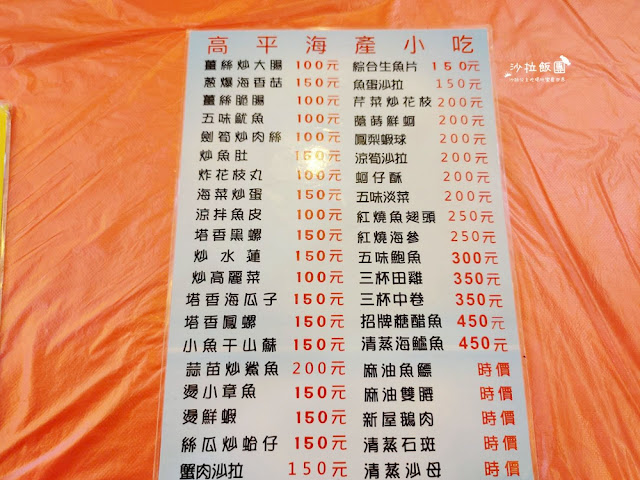 高平海產小吃
沙拉飯團
薑絲炒大腸 100元
蔥爆海香菇 150元
薑絲脆腸 100元
五味魷魚 100元
劍筍炒肉絲 100元
炒魚肚 150元
炸花枝丸 100元
海菜炒蛋 150元
涼拌魚皮 100元
塔香黑螺 150元
炒水蓮 150元
炒高麗菜 100元
塔香海瓜子 150元
塔香鳳螺 150元
小魚干山蘇 150元
蒜苗炒鯊魚 200元
燙小章魚 150元
燙鮮蝦 150元
絲瓜炒蛤仔 150元
蟹肉沙拉 150元
綜合生魚片 150元
魚蛋沙拉 150元
芹菜炒花枝 200元
蔭蒔鮮蚵 200元
鳳梨蝦球 200元
涼筍沙拉 200元
蚵仔酥 200元
五味淡菜 200元
紅燒魚翅頭 250元
紅燒海參 250元
五味鮑魚 300元
三杯田雞 350元
三杯中卷 350元
招牌糖醋魚 450元
清蒸海鱸魚 450元
麻油魚鰾 時價
麻油雙膶 時價
新屋鵝肉 時價
清蒸石斑 時價
清蒸沙母 時價